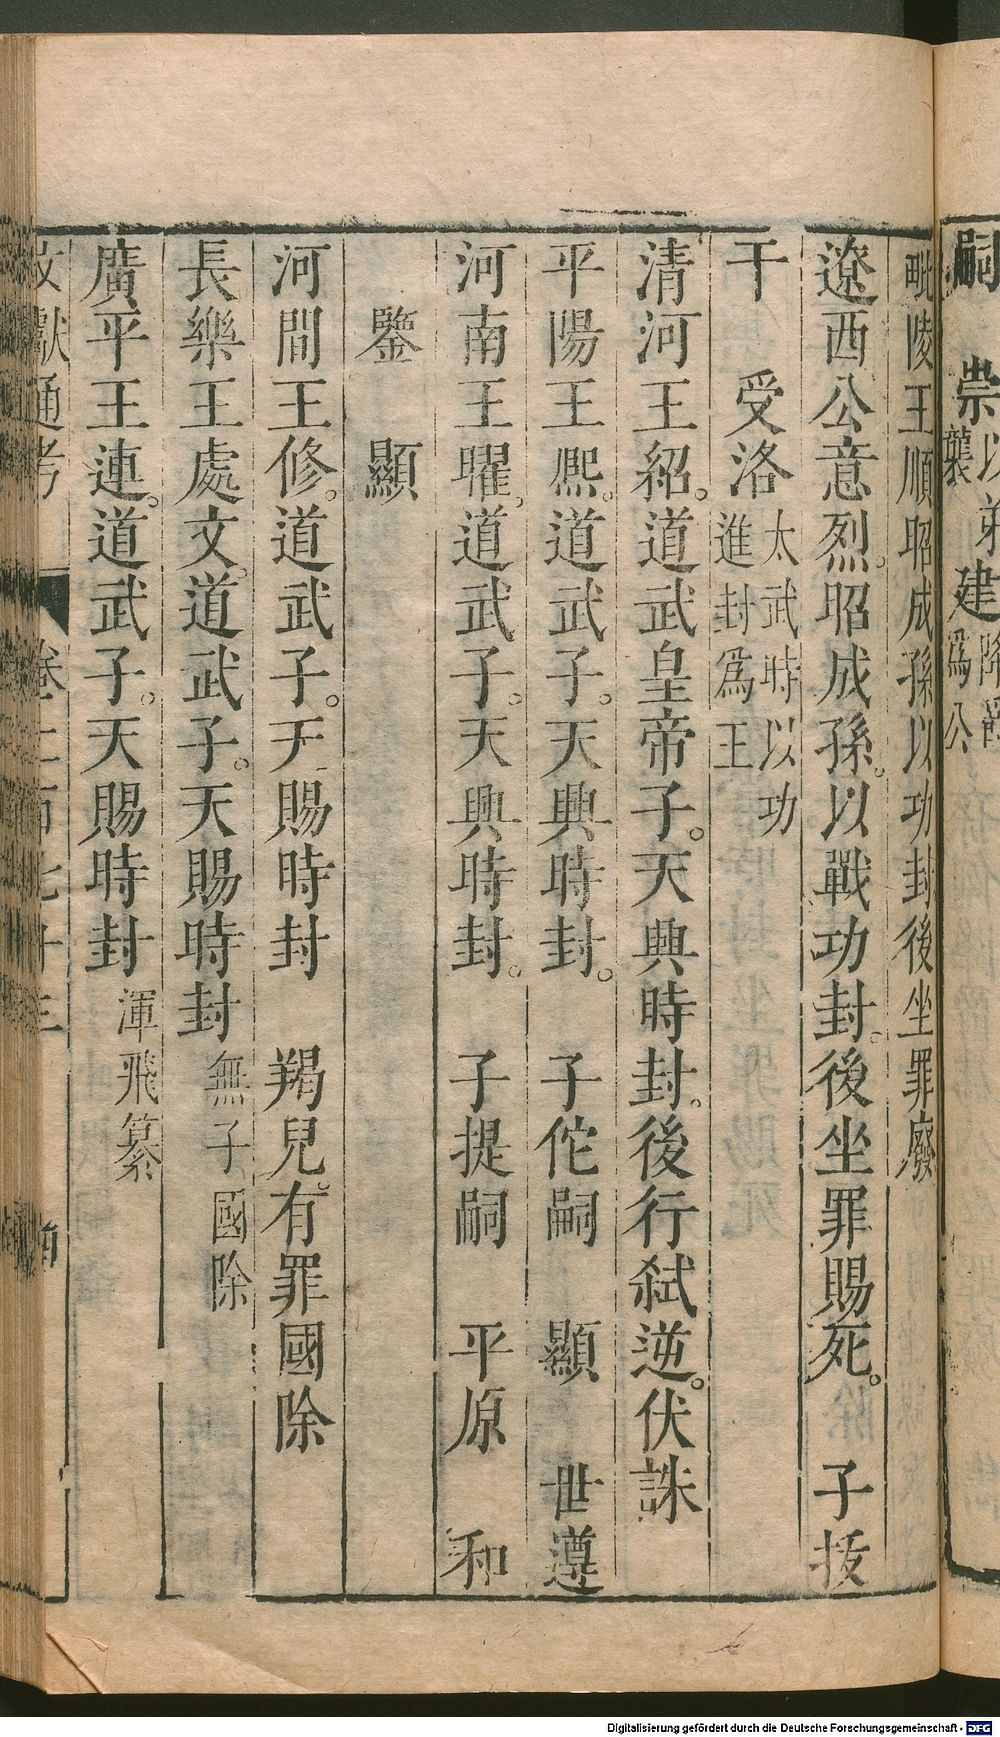 嗣 崇以弟建降爵
襲 爲公
毗陵王順昭成孫以功封後坐罪廢
遼西公意烈。昭成孫。以戰功封。後坐罪賜死。 子拔
干 受洛太武時以功
進封爲王
清河王紹。道武皇帝子。天興時封。後行弑逆。伏誅
平陽王熈。道武子。天興時封。 子佗嗣 顯 世遵
河南王曜。道武子。天興時封。 子提嗣 平原 和
鑒 顯
河間王修。道武子。天賜時封 羯兒。有罪國除
長樂王處文。道武子。天賜時封 無子國除
廣平王連。道武子。天賜時封 渾 飛 纂
文獻通考 卷二百七十三
Digitalisierung gefördert durch die Deutsche Forschungsgemeinschaft - DFG